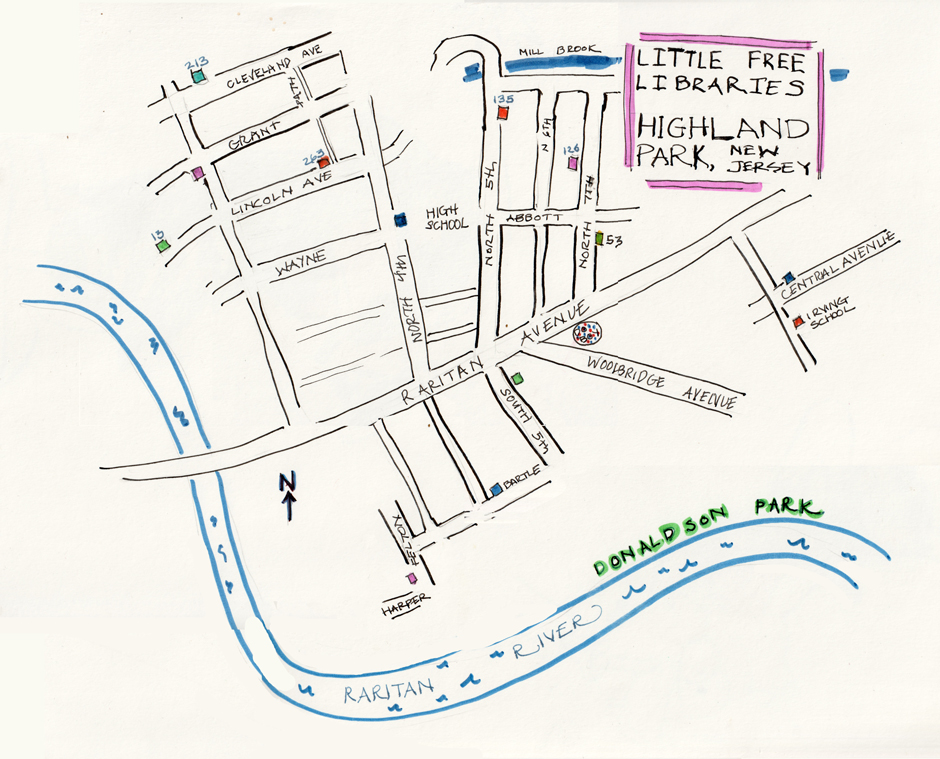 LITTLE FREE
LIBRARIES
HIGHLAND
PARK, NEW
JERSEY
MILL BROOK
213
CLEVELAND AVE
GRANT
263
LINCOLN AVE
13
WAYNE
NORTH 4TH
HIGH
SCHOOL
135
NORTH 5TH
N 6TH
126
NORTH 7TH
ABBOTT
53
RARITAN AVENUE
WOOLBRIDGE AVENUE
CENTRAL AVENUE
IRVING
SCHOOL
SOUTH 5TH
BARTLE
HARPER
N
DONALDSON PARK
RARITAN RIVER